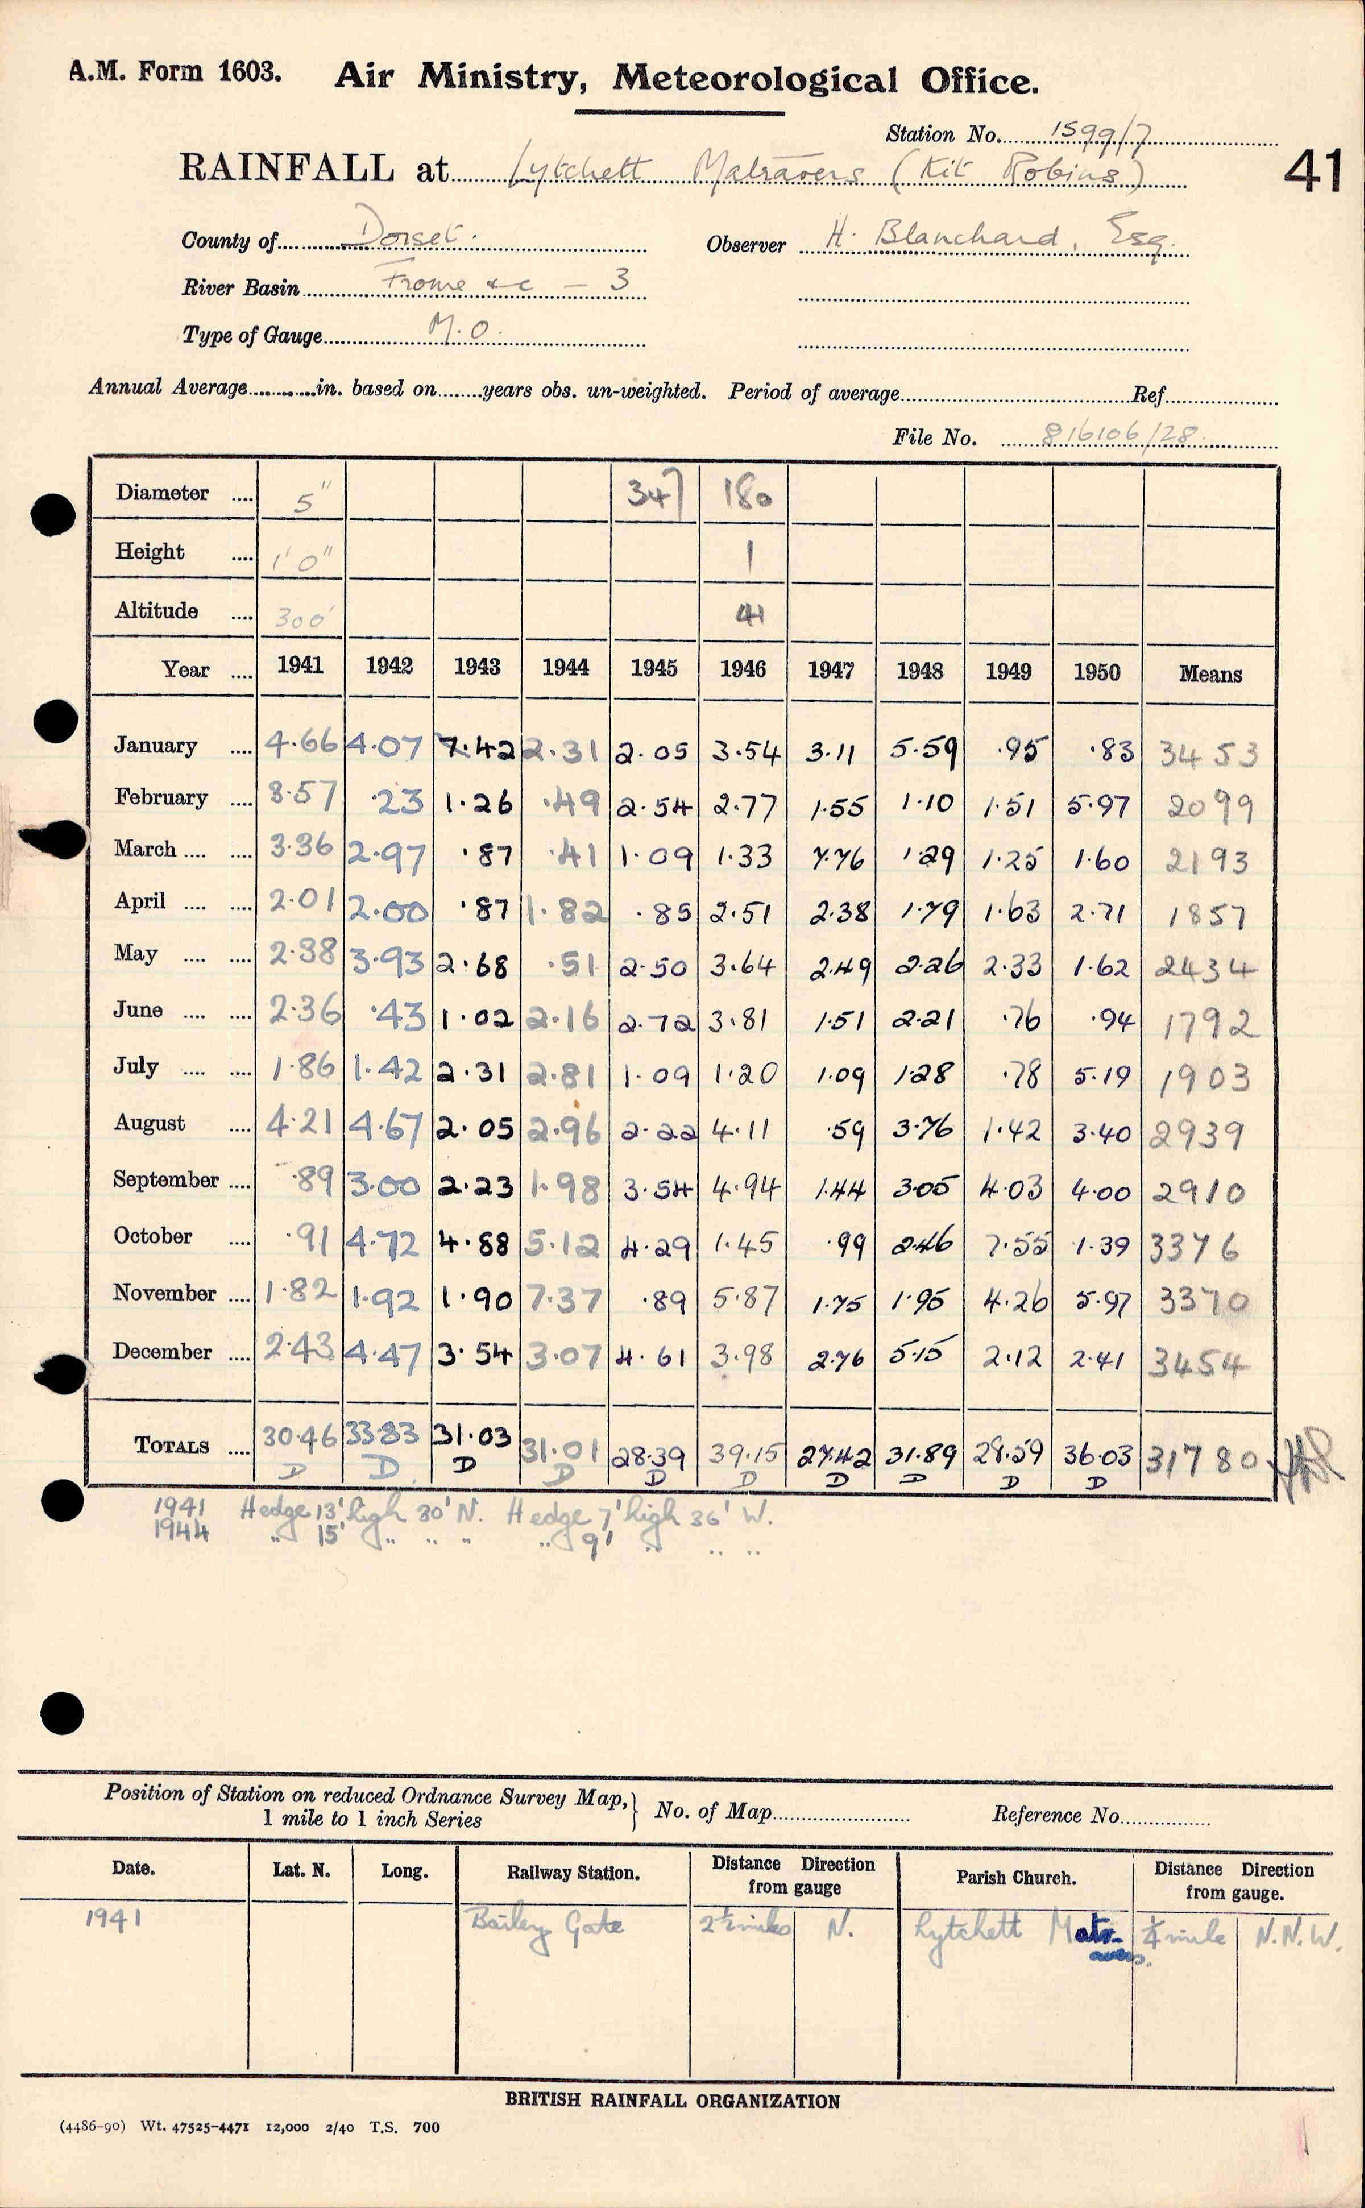 A.M. Form 1603. Air Ministry, Meteorological Office.
Station No. 1599/7
RAINFALL at Lytchett Matravers (Kit Robins)
41
County of Dorset. Observer H. Blanchard, Esq.
River Basin Frome &c - 3
Type of Gauge M.O.
Annual Average in. based on years obs. un-weighted. Period of average Ref
File No. 816106/28
Diameter .... 5" 347 180
Height .... 1'0" 1
Altitude .... 300' 41
Year .... 1941 1942 1943 1944 1945 1946 1947 1948 1949 1950 Means
January .... 4.66 4.07 7.42 2.31 2.05 3.54 3.11 5.59 .95 .83 3453
February .... 3.57 .23 1.26 .49 2.54 2.77 1.55 1.10 1.51 5.97 2099
March .... .... 3.36 2.97 .87 .41 1.09 1.33 7.76 1.29 1.25 1.60 2193
April .... .... 2.01 2.00 .87 1.82 .85 2.51 2.38 1.79 1.63 2.71 1857
May .... .... 2.38 3.93 2.68 .51 2.50 3.64 2.49 2.26 2.33 1.62 2434
June .... .... 2.36 .43 1.02 2.16 2.72 3.81 1.51 2.21 .76 .94 1792
July .... .... 1.86 1.42 2.31 2.81 1.09 1.20 1.09 1.28 .78 5.19 1903
August .... 4.21 4.67 2.05 2.96 2.22 4.11 .59 3.76 1.42 3.40 2939
September .... .89 3.00 2.23 1.98 3.54 4.94 1.44 3.05 4.03 4.00 2910
October .... .91 4.72 4.88 5.12 4.29 1.45 .99 2.46 7.55 1.39 3376
November .... 1.82 1.92 1.90 7.37 .89 5.87 1.75 1.95 4.26 5.97 3370
December .... 2.43 4.47 3.54 3.07 4.61 3.98 2.76 5.15 2.12 2.41 3454
TOTALS .... 30.46 33.83 31.03 31.01 28.39 39.15 27.42 31.89 28.59 36.03 31780
D D D D D D D D D D
1941 Hedge 13' high 30' N. Hedge 7' high 36' W.
1944 " 15' " " " " 9' " " "
Position of Station on reduced Ordnance Survey Map,} No. of Map Reference No.
1 mile to 1 inch Series
Date. Lat. N. Long. Railway Station. Distance Direction from gauge Parish Church. Distance Direction from gauge.
1941 Bailey Gate 2½ miles N. Lytchett Matr- ¼ mile N.N.W.
avers.
BRITISH RAINFALL ORGANIZATION
(4486-90) Wt. 47525-4471 12,000 2/40 T.S. 700